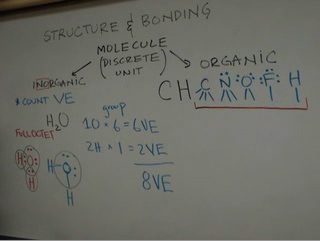 STRUCTURE & BONDING
MOLECULE
(DISCRETE UNIT)
INORGANIC
ORGANIC
* COUNT VE
CH C N O F H
H₂O
group
1O · 6 = 6VE
FULL OCTET
2H × 1 = 2VE
8VE
H O H
H O
H